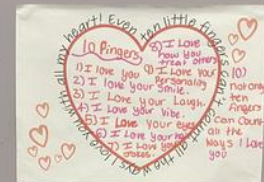 I love you with all my heart! Even ten little fingers can't count all the ways
10 Fingers
1) I love you
2) I love your smile.
3) I Love your Laugh.
4) I Love your vibe.
5) I Love your eyes
6) I Love your
7) I Love your
jokes.
8) I Love
how you
treat others
9) I Love your
Personality
10)
not only
ten
fingers
Can Count
all the
Ways I Love
you